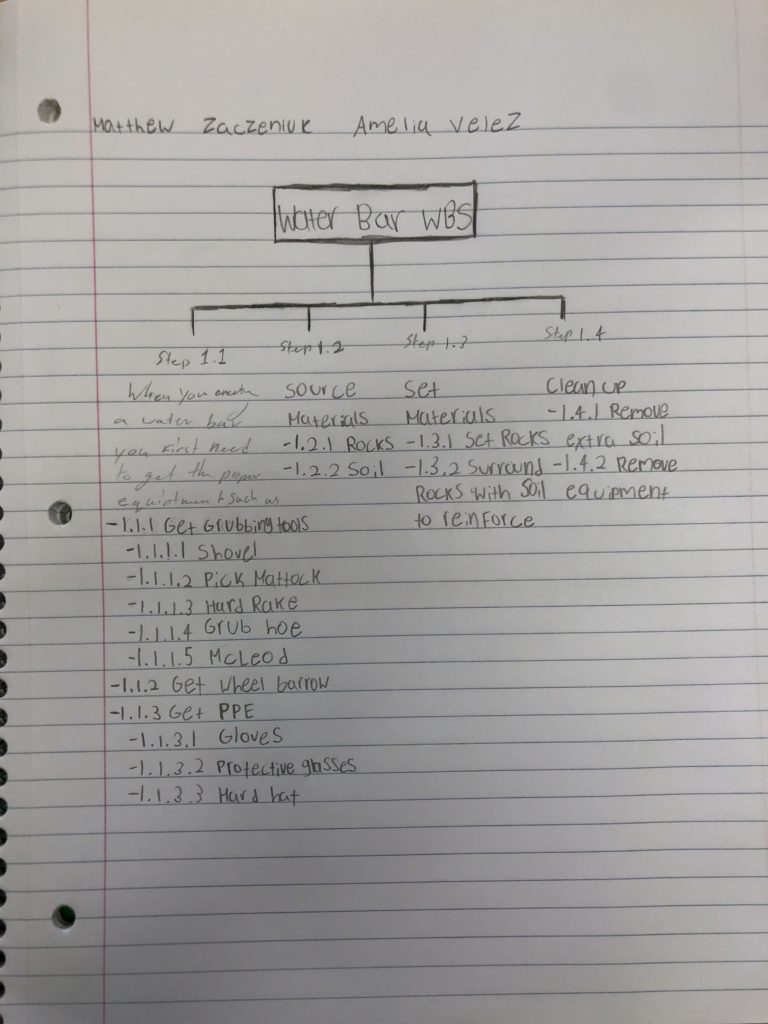 Matthew Zaczeniuk Amelia Velez
Water Bar WBS
Step 1.1
Step 1.2
Step 1.3
Step 1.4
When you create
a water bar
you first need
to get the proper
equiptment such as
-1.1.1 Get Grubbing tools
-1.1.1.1 Shovel
-1.1.1.2 Pick Mattock
-1.1.1.3 Hard Rake
-1.1.1.4 Grub hoe
-1.1.1.5 McLeod
-1.1.2 Get wheel barrow
-1.1.3 Get PPE
-1.1.3.1 Gloves
-1.1.3.2 Protective glasses
-1.1.3.3 Hard hat
Source
Materials
-1.2.1 Rocks
-1.2.2 Soil
Set
Materials
-1.3.1 Set Rocks
-1.3.2 Surround
Rocks with Soil
to reinforce
Clean up
-1.4.1 Remove
extra soil
-1.4.2 Remove
equipment